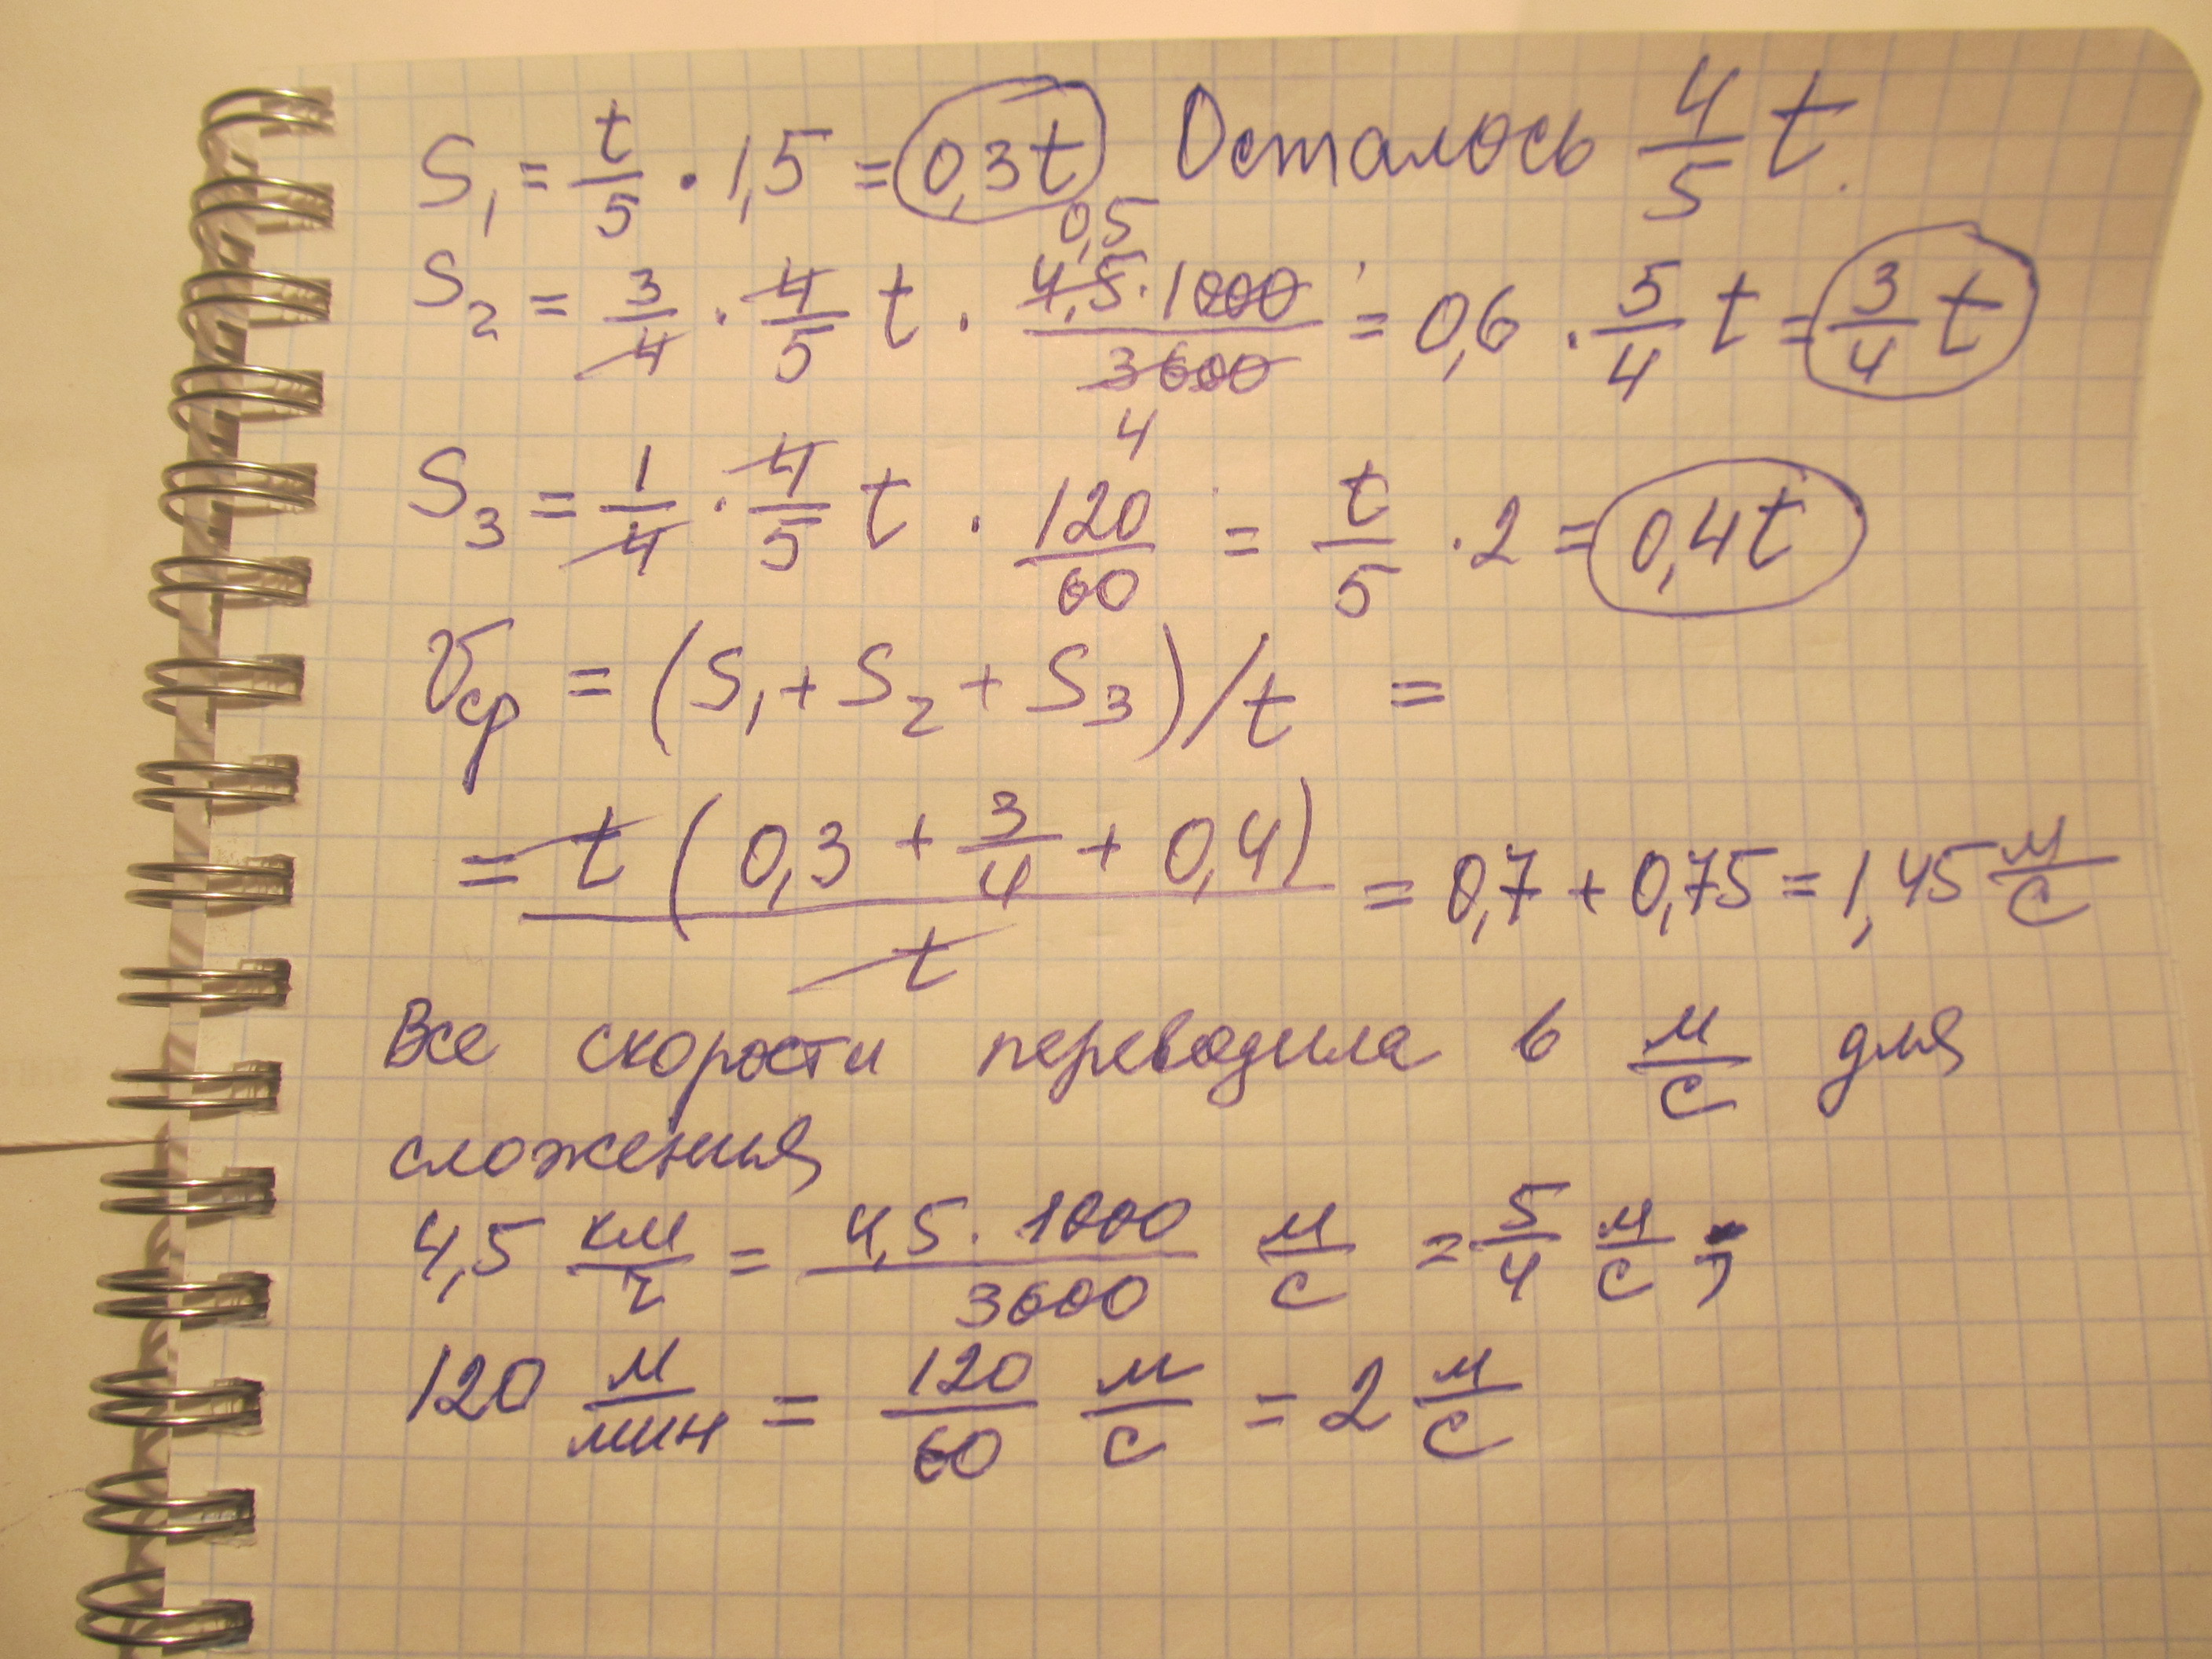 S₁ = t/5 · 1,5 = 0,3t Осталось 4/5 t.
S₂ = 3/4 · 4/5 t · 4,5·1000/3600 = 0,6 · 5/4 t = 3/4 t
0,5
4
S₃ = 1/4 · 4/5 t · 120/60 = t/5 · 2 = 0,4t
Vср = (S₁ + S₂ + S₃)/t =
= t(0,3 + 3/4 + 0,4)/t = 0,7 + 0,75 = 1,45 м/с
Все скорости переводила в м/с для
сложения
4,5 км/ч = 4,5·1000/3600 м/с = 5/4 м/с ;
120 м/мин = 120/60 м/с = 2 м/с